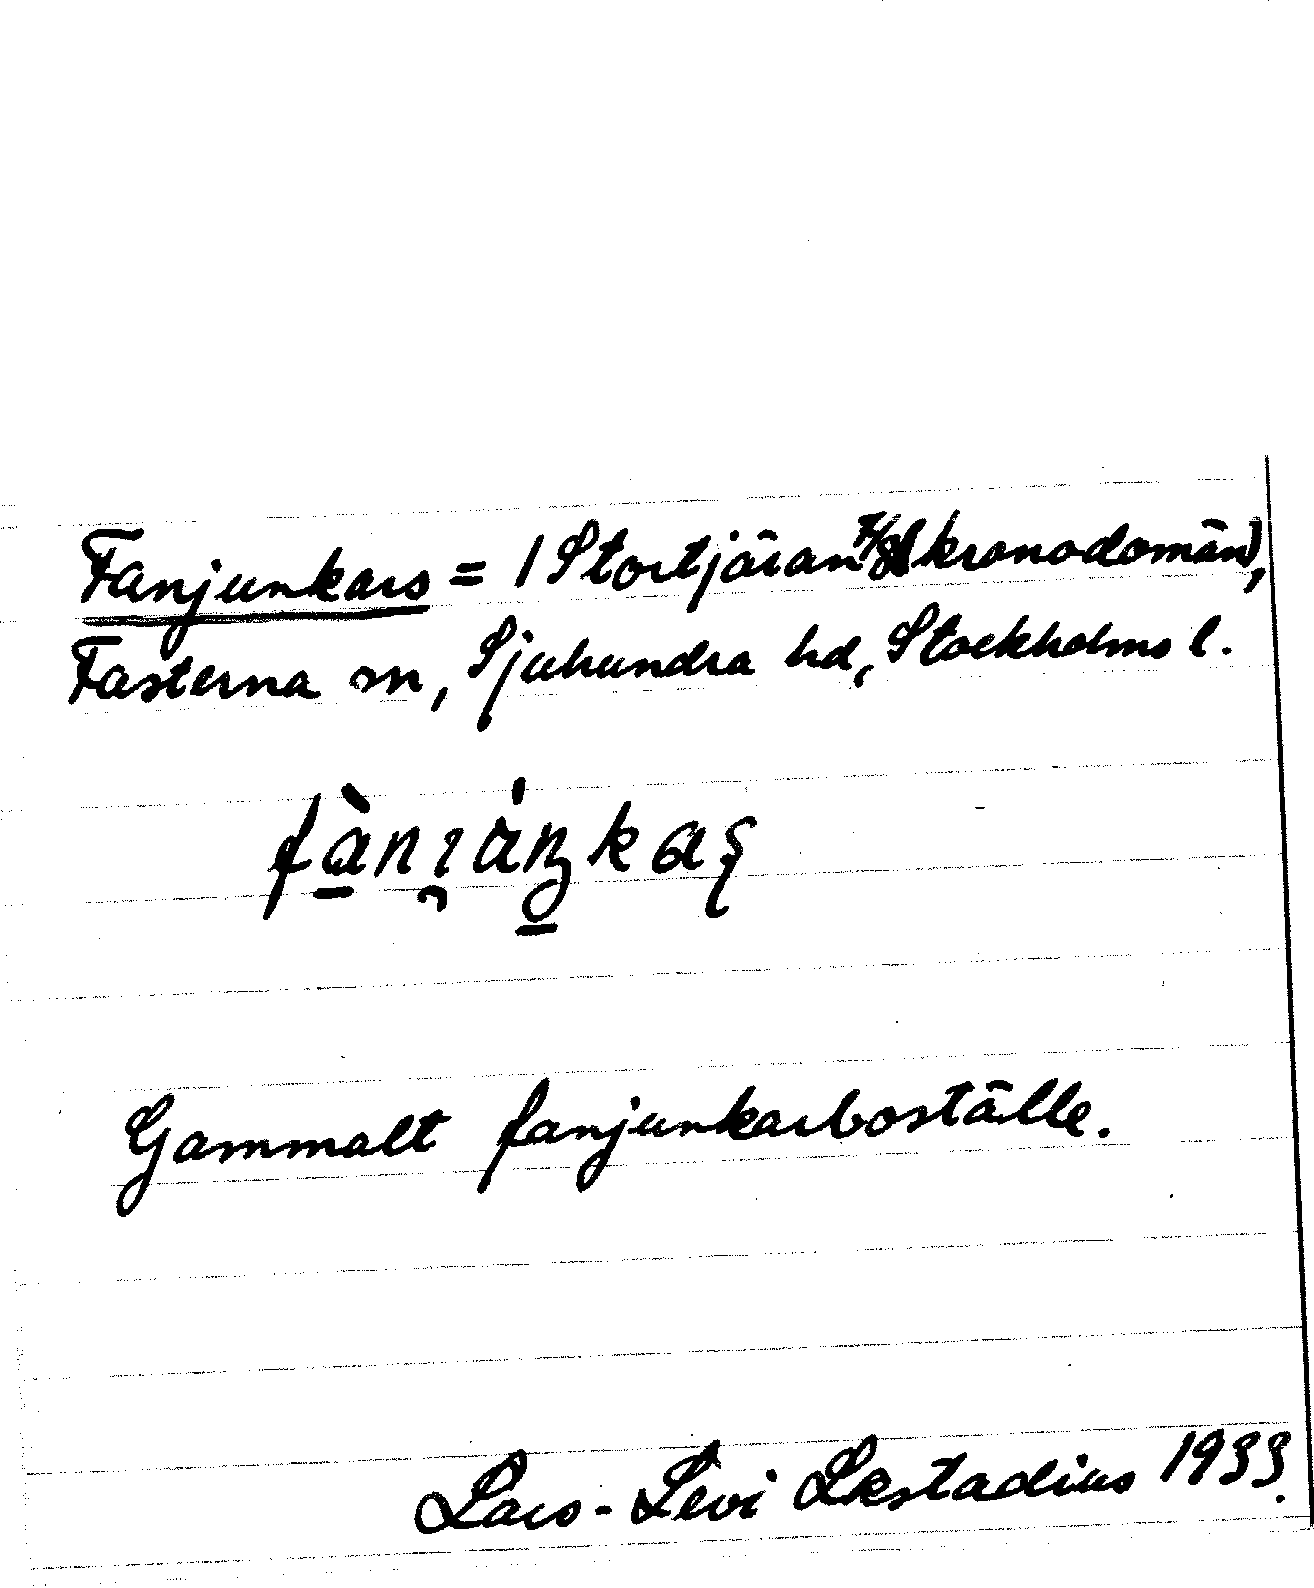 Fanjunkars = 1 Stortjäran (kronodomän),
Fasterna sn, Sjuhundra hd, Stockholms l.
Gammalt fanjunkarboställe.
Lars-Levi Læstadius 1933.